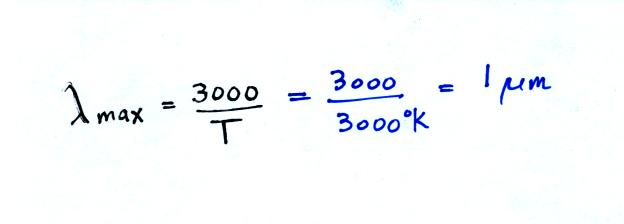 λmax = 3000/T = 3000/3000°K = 1 μm